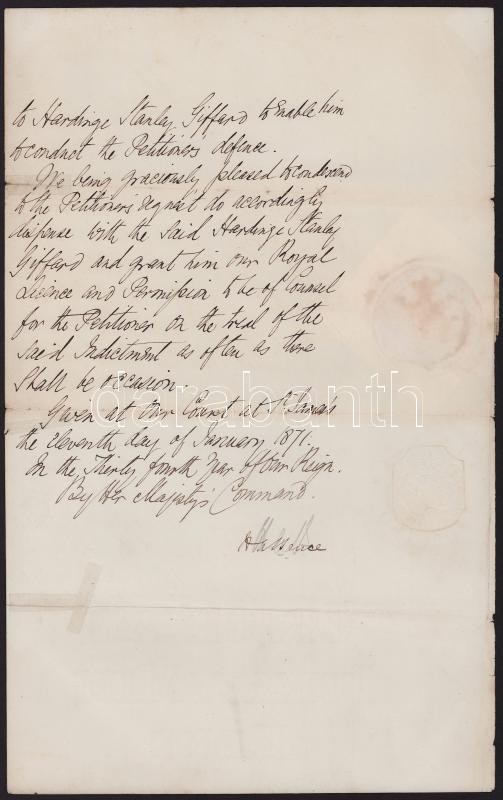 to Hardinge Stanley Giffard to Enable him
to conduct the Petitioners defence.
We being graciously pleased to condescend
to the Petitioners request do accordingly
dispense with the said Hardinge Stanley
Giffard and grant him our Royal
Licence and Permission to be of Counsel
for the Petitioner on the trial of the
said Indictment as often as there
shall be occasion.
Given at Our Court at St. James's
the eleventh day of January 1871.
In the Thirty fourth Year of Our Reign.
By Her Majesty's Command.
darabanth